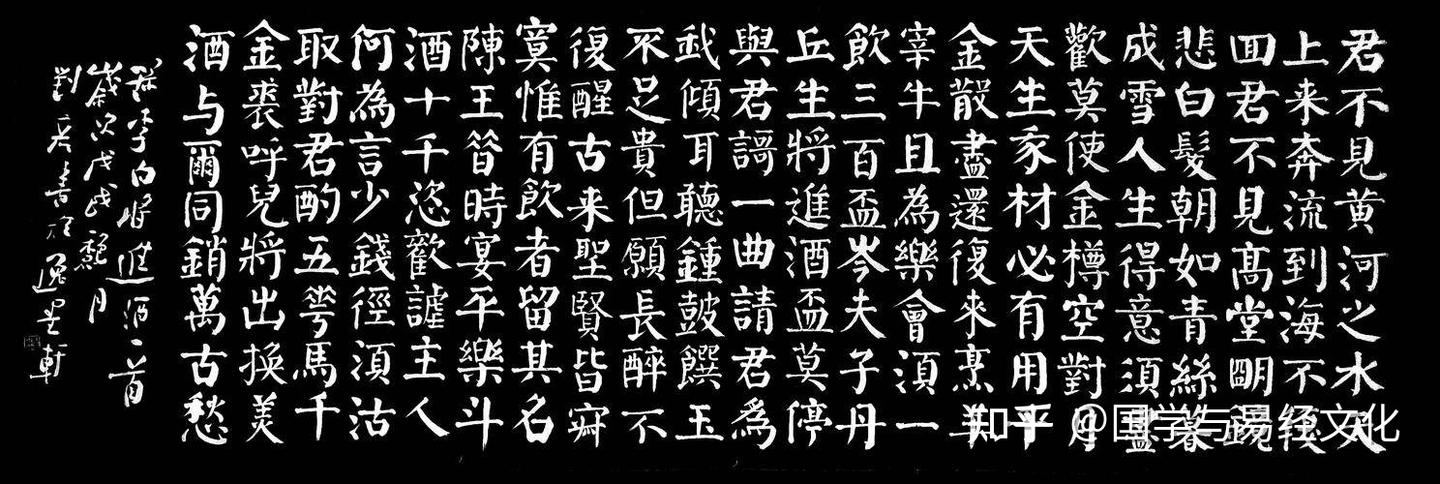 君不見黄河之水天
上来奔流到海不復
囬君不見高堂朙鏡
悲白髮朝如青絲暮
成雪人生得意須盡
歡莫使金樽空對月
天生我材必有用千
金散盡還復來烹羊
宰牛且為樂會須一
飲三百盃岑夫子丹
丘生將進酒盃莫停
與君謌一曲請君為
我傾耳聽鍾鼓饌玉
不足貴但願長醉不
復醒古来聖賢皆寂
寞惟有飲者留其名
陳王昔時宴平樂斗
酒十千恣歡謔主人
何為言少錢徑須沽
取對君酌五花馬千
金裘呼兒將出換美
酒与爾同銷萬古愁
李白將進酒一首
歲次戊戌龝月
劉書於逸軒
知乎 @国学与易经文化